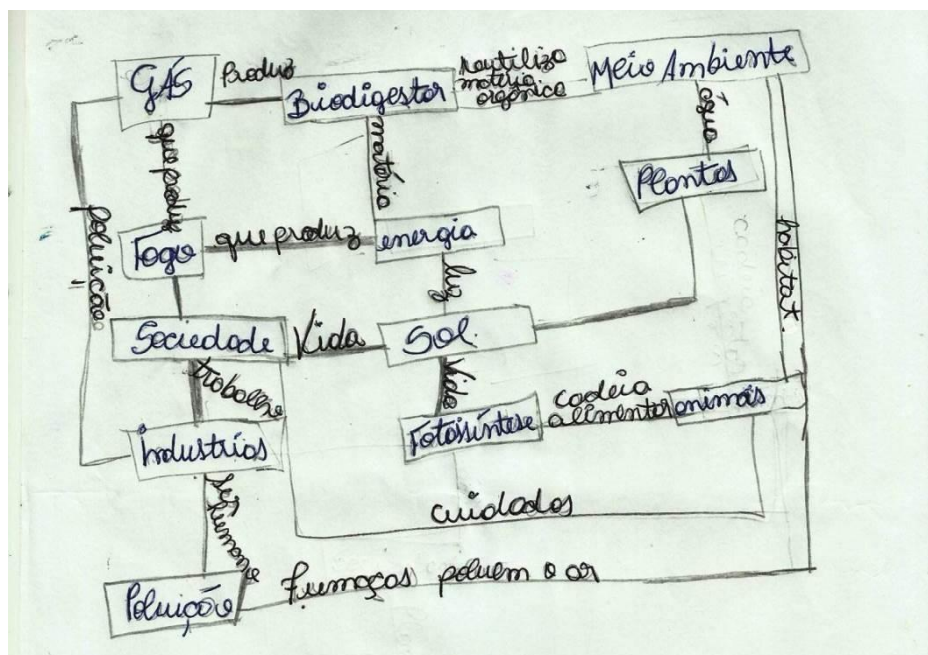 GÁS
Produz
Biodigestor
reutiliza
matéria
orgânica
Meio Ambiente
água
que produz
matéria
Plantas
poluição
Fogo
que produz
energia
habitat.
luz
Sociedade
Vida
SOL.
trabalho
Vida
Industrias
Fotossíntese
cadeia
alimentar
animais
ser humano
cuidados
Poluição
fumaças poluem o ar